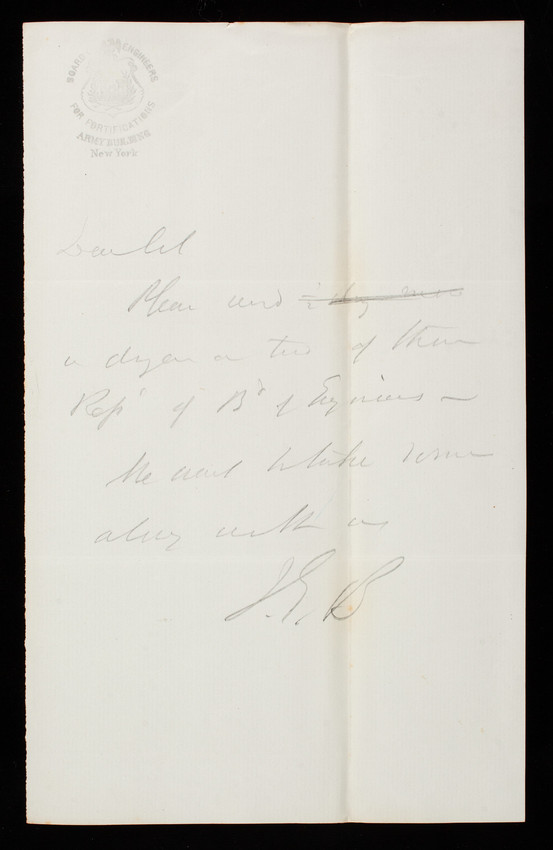 BOARD OF ENGINEERS
FOR FORTIFICATIONS
ARMY BUILDING
New York
Dear Col
Please send ½
a dozen or two of those
Repts of Bd of Engineers –
We want to take some
along with us